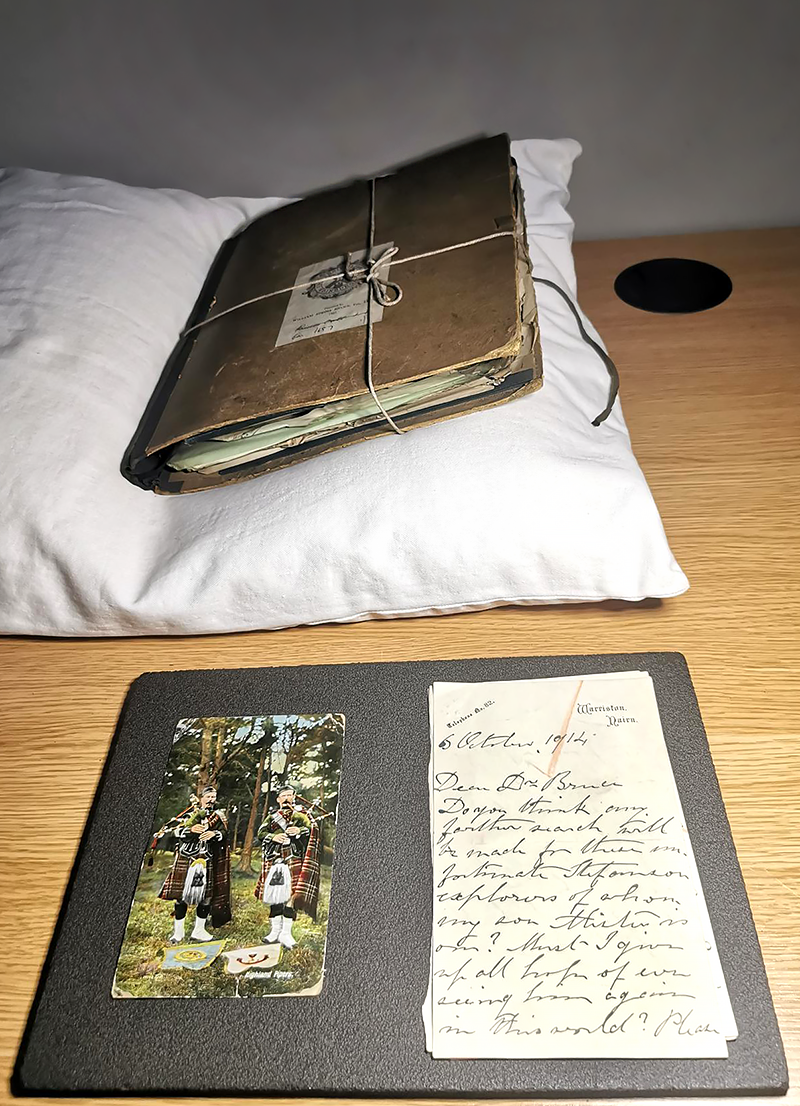 Telephone No. 82.
Warriston.
Nairn.
6 October, 1914
Dear Dr Bruce
Do you think any
further search will
be made for these un-
fortunate Stefansson
explorers of whom
my son Alister is
one? Must I give
up all hope of ever
seeing him again
in this world? Please
Highland Pipers.